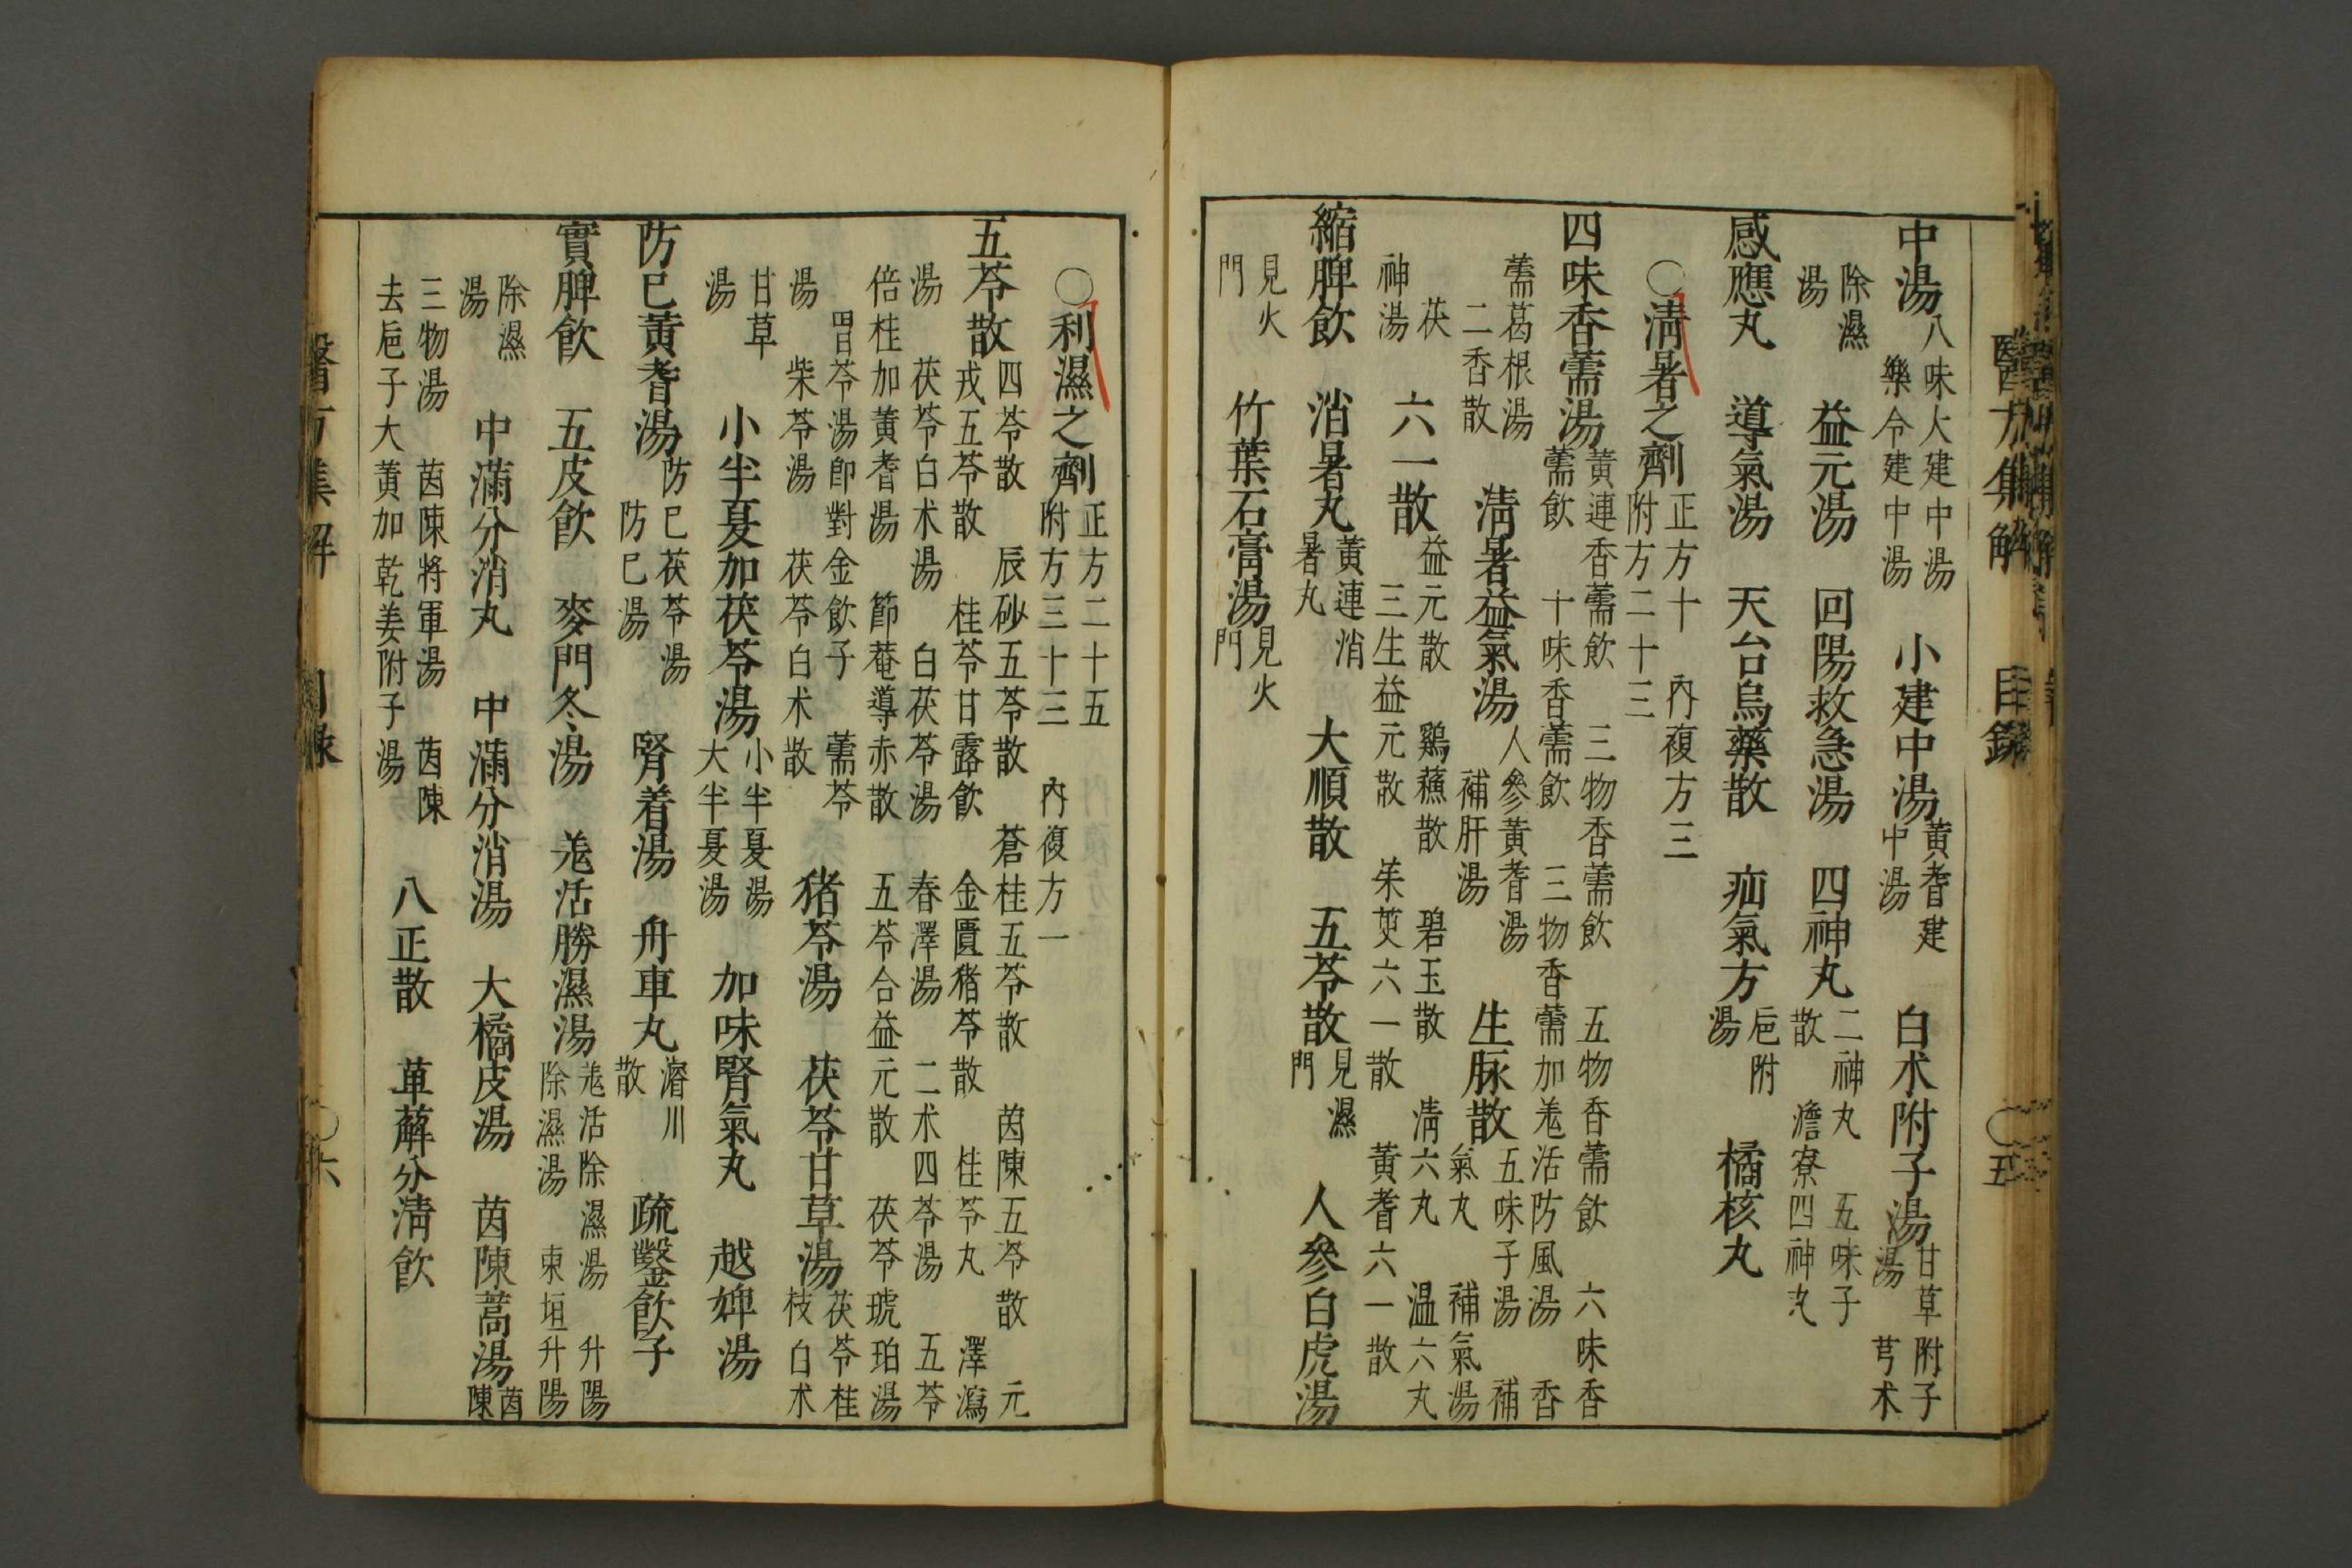 醫方集解 目錄 〇五
中湯 八味大建中湯 樂令建中湯 小建中湯 黃耆建中湯 白朮附子湯 甘草附子湯 芎朮
除濕湯 益元湯 回陽救急湯 四神丸 二神丸 五味子散 澹寮四神丸
感應丸 導氣湯 天台烏藥散 疝氣方 梔附湯 橘核丸
〇清暑之劑 正方十 附方二十三 內複方三
四味香薷湯 黃連香薷飲 三物香薷飲 五物香薷飲 六味香薷飲 十味香薷飲 三物香薷加羗活防風湯 香
薷葛根湯 二香散 清暑益氣湯 人參黃耆湯 補肝湯 生脉散 五味子湯 補氣丸 補氣湯 補
神湯 六一散 益元散 鷄蘇散 碧玉散 清六丸 温六丸 三生益元散 茱萸六一散 黃耆六一散 茯
縮脾飲 消暑丸 黃連消暑丸 大順散 五苓散 見濕門 人參白虎湯
見火門 竹葉石膏湯 見火門
〇利濕之劑 正方二十五 附方三十三 內複方一
五苓散 四苓散 辰砂五苓散 蒼桂五苓散 茵陳五苓散 元戎五苓散 桂苓甘露飲 金匱猪苓散 桂苓丸 澤瀉
湯 茯苓白朮湯 白茯苓湯 春澤湯 二朮四苓湯 五苓倍桂加黃耆湯 節菴導赤散 五苓合益元散 茯苓琥珀湯
胃苓湯即對金飲子 薷苓湯 柴苓湯 茯苓白朮散 猪苓湯 茯苓甘草湯 茯苓桂枝白朮
甘草湯 小半夏加茯苓湯 小半夏湯 大半夏湯 加味腎氣丸 越婢湯
防已黃耆湯 防已茯苓湯 防已湯 腎着湯 舟車丸 濬川散 疏鑿飲子
實脾飲 五皮飲 麥門冬湯 羗活勝濕湯 羗活除濕湯 升陽除濕湯 東垣升陽
除濕湯 中滿分消丸 中滿分消湯 大橘皮湯 茵陳蒿湯 茵陳
三物湯 茵陳將軍湯 茵陳去梔子大黃加乾姜附子湯 八正散 萆薢分清飲
醫方集解 目錄 〇六